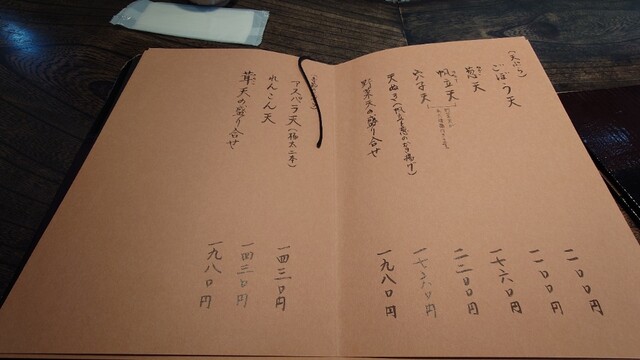 (天ぷら)
ごぼう天
一一〇〇円
葱天
一一〇〇円
帆立天
一七六〇円
穴子天
二二〇〇円
天ぬき(帆立と葱のかき揚げ)
一七六〇円
野菜天の盛り合せ
一九八〇円
アスパラ天(極太二本)
一四三〇円
れんこん天
一四三〇円
茸天の盛り合せ
一九八〇円